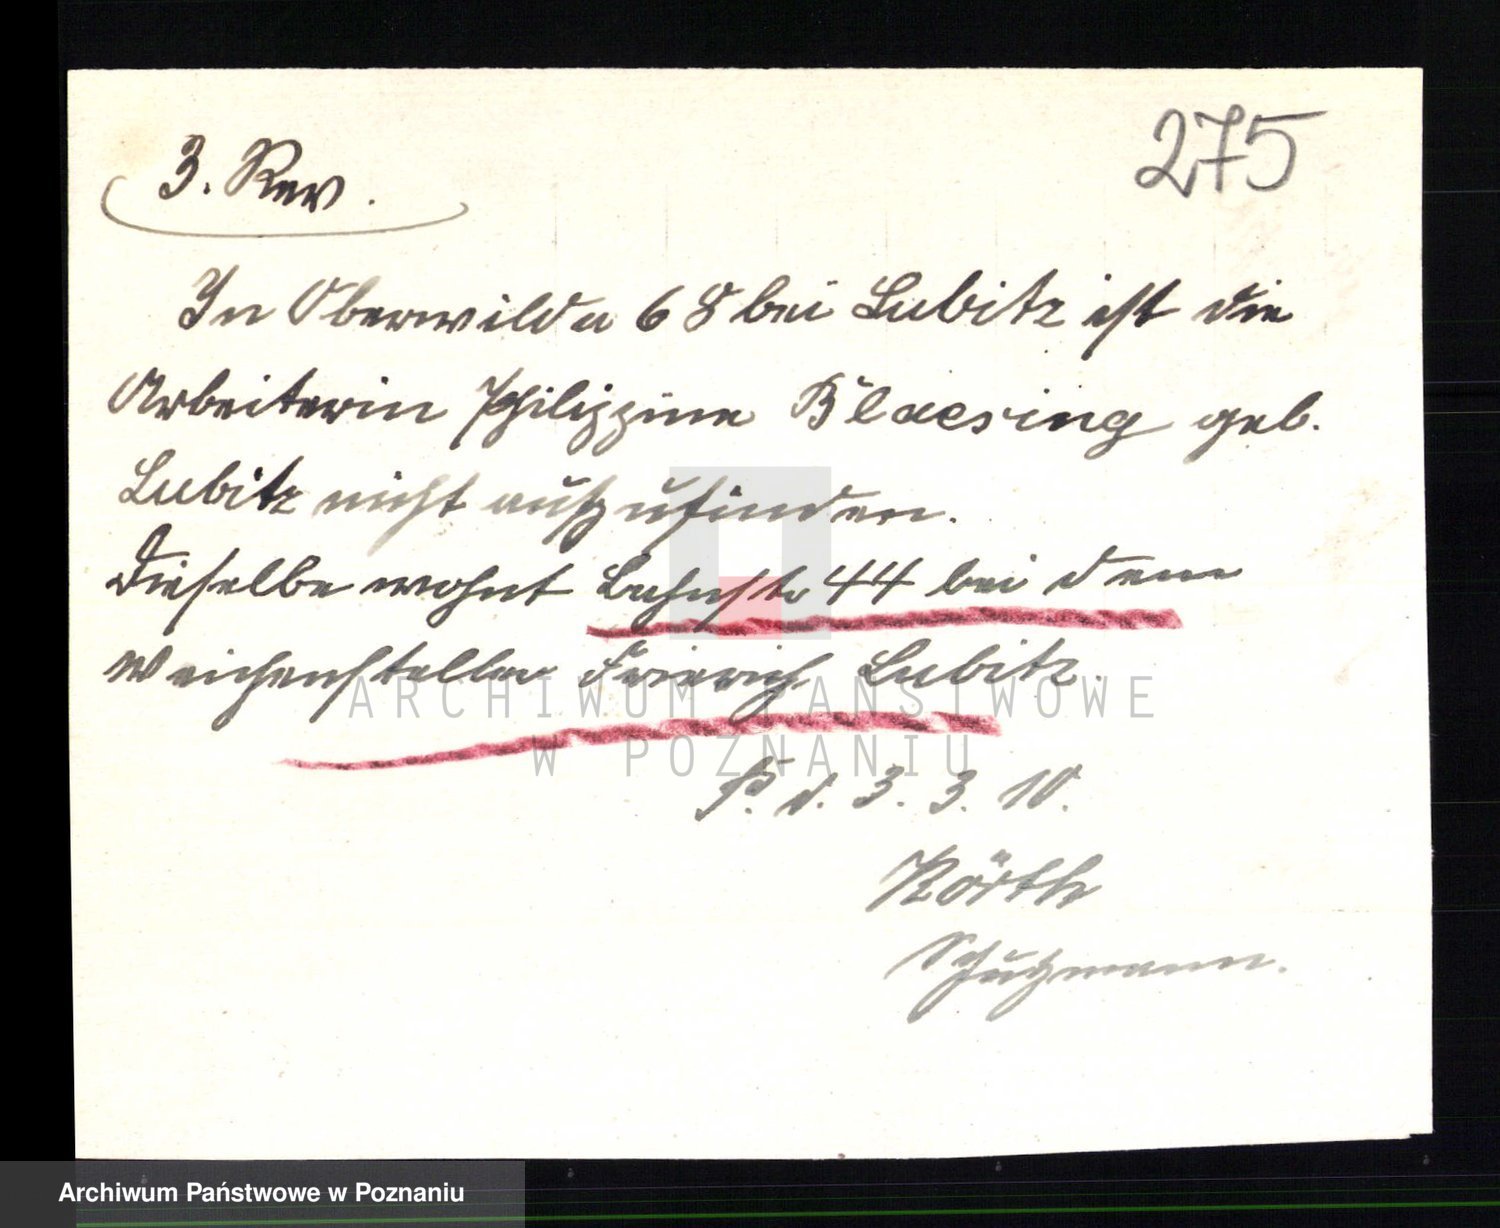 275
3. Rev.
In Oberwilda 68 bei Lubitz ist die
Arbeiterin Philippine Blaesing geb.
Lubitz nicht aufzufinden.
Dieselbe wohnt Bahnstr 44 bei dem
Weichensteller Frierich Lubitz.
ARCHIWUM PAŃSTWOWE
W POZNANIU
P. d. 3. 3. 10.
Schutzmann.
Archiwum Państwowe w Poznaniu